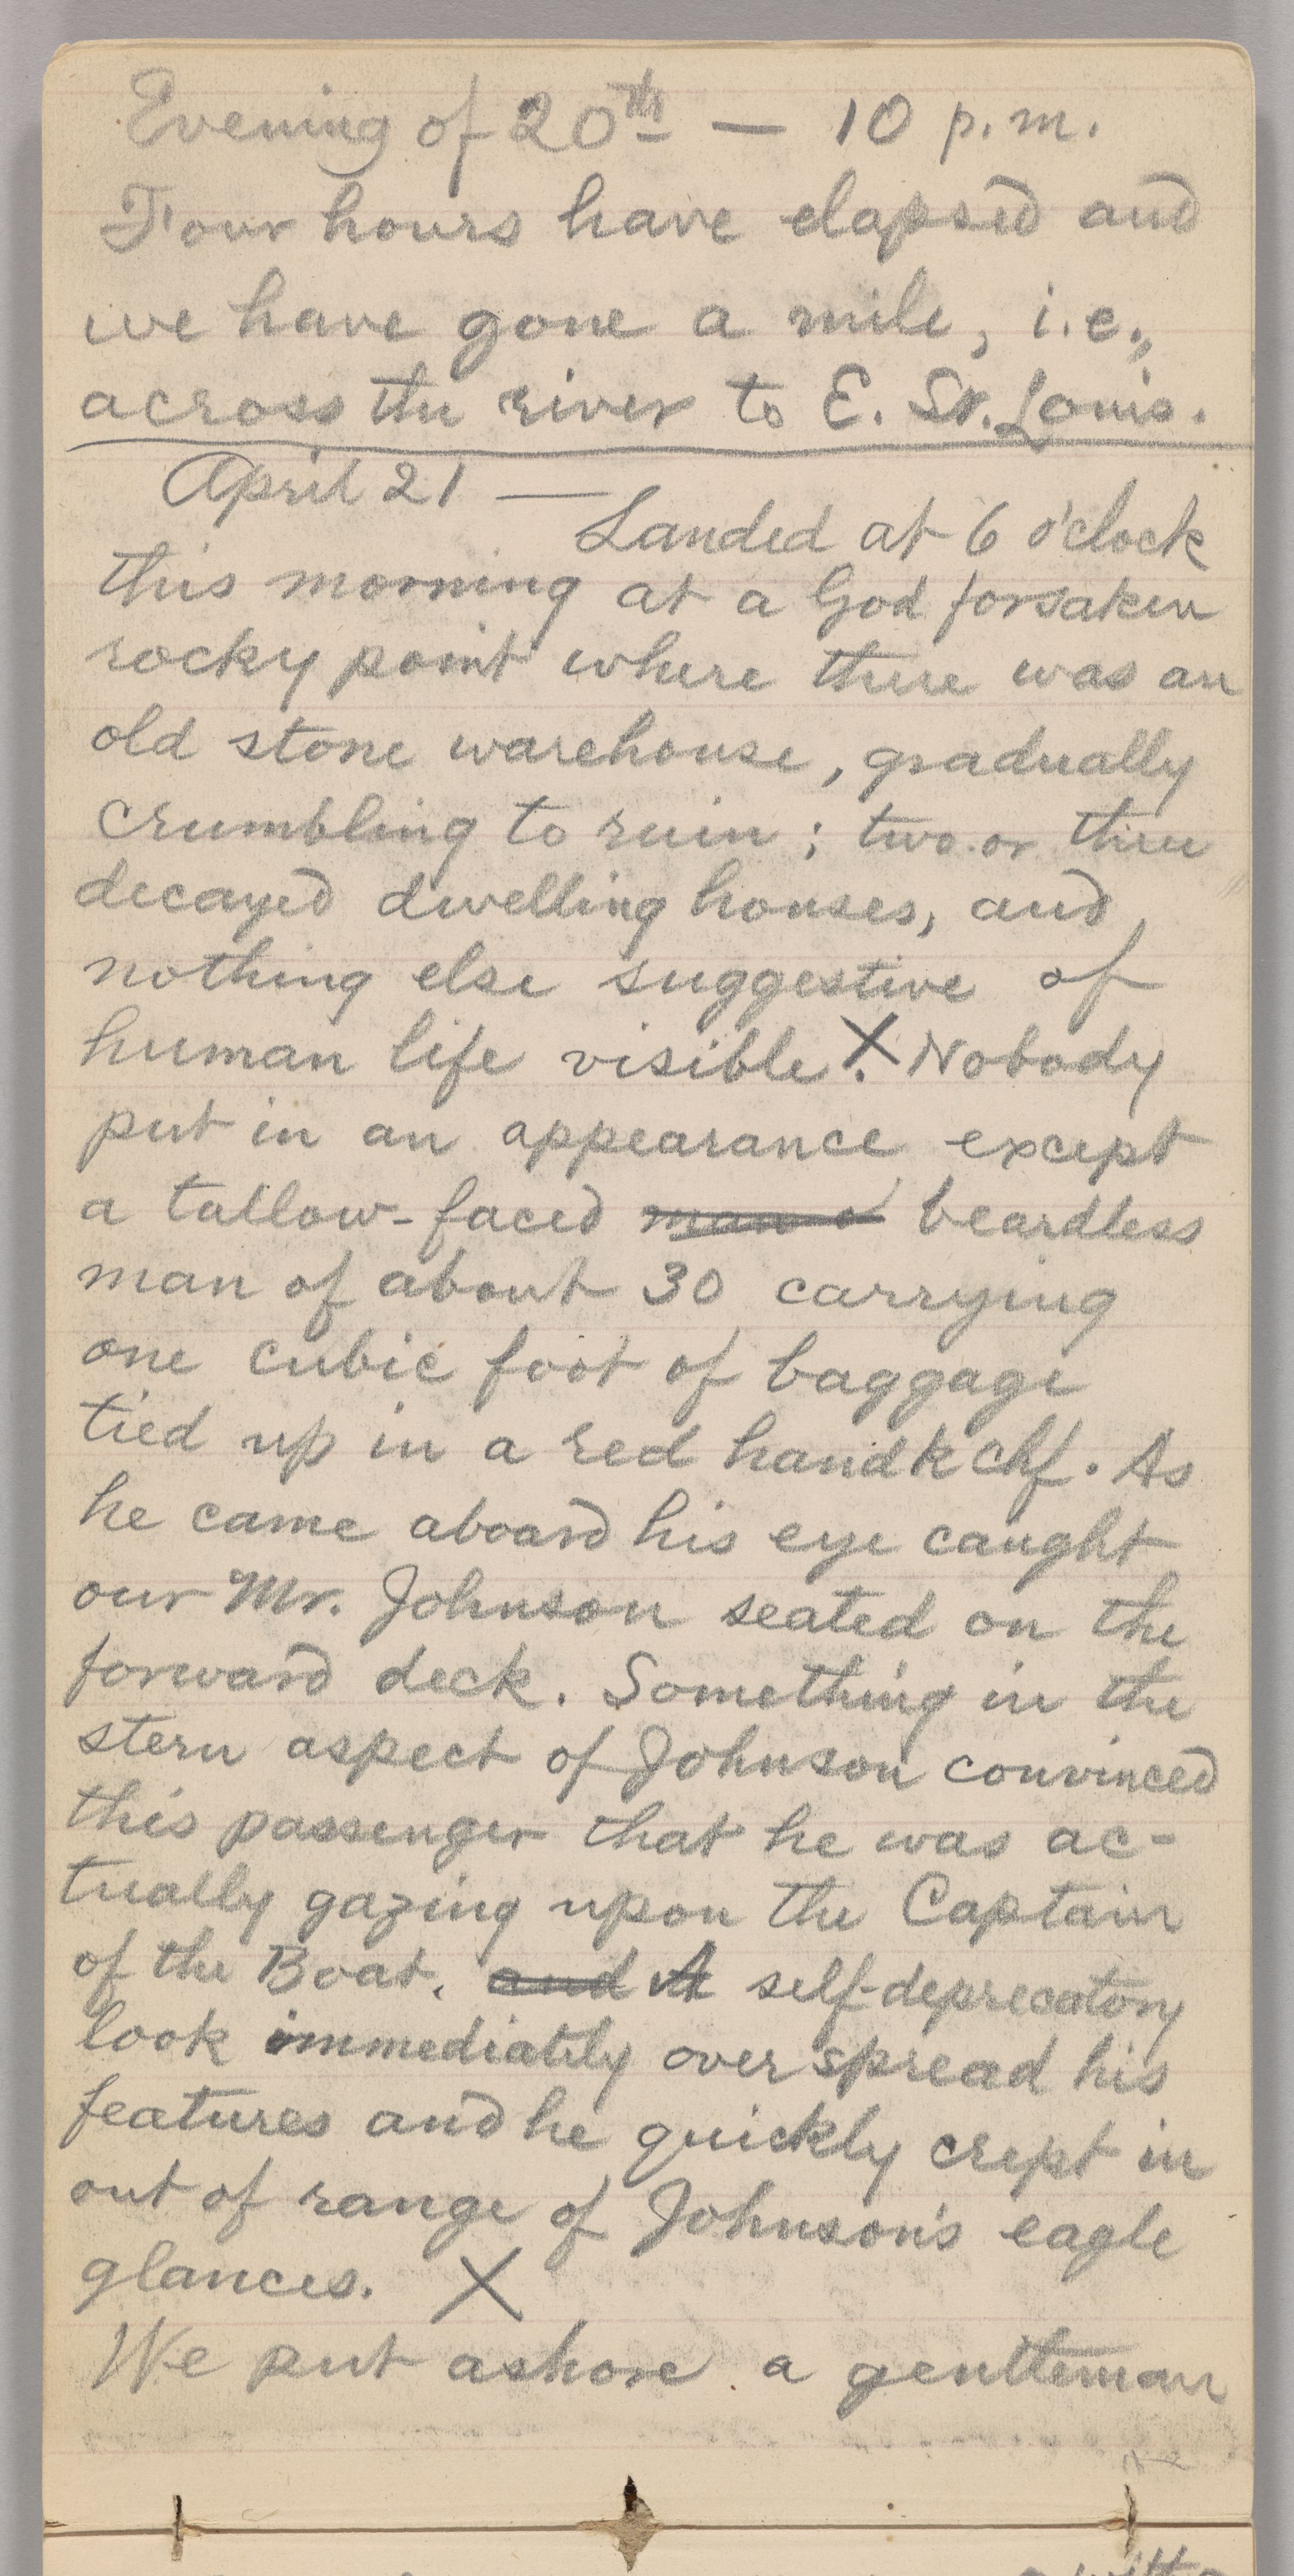 Evening of 20th — 10 p.m.
Four hours have elapsed and
we have gone a mile, i.e.,
across the river to E. St. Louis.
April 21 — Landed at 6 o'clock
this morning at a God forsaken
rocky point where there was an
old stone warehouse, gradually
crumbling to ruin; two or three
decayed dwelling houses, and
nothing else suggestive of
human life visible. X Nobody
put in an appearance except
a tallow-faced man o beardless
man of about 30 carrying
one cubic foot of baggage
tied up in a red handkchf. As
he came aboard his eye caught
our Mr. Johnson seated on the
forward deck. Something in the
stern aspect of Johnson convinced
this passenger that he was ac-
tually gazing upon the Captain
of the Boat. and A self-deprecatory
look immediately overspread his
features and he quickly crept in
out of range of Johnson's eagle
glances. X
We put ashore a gentleman